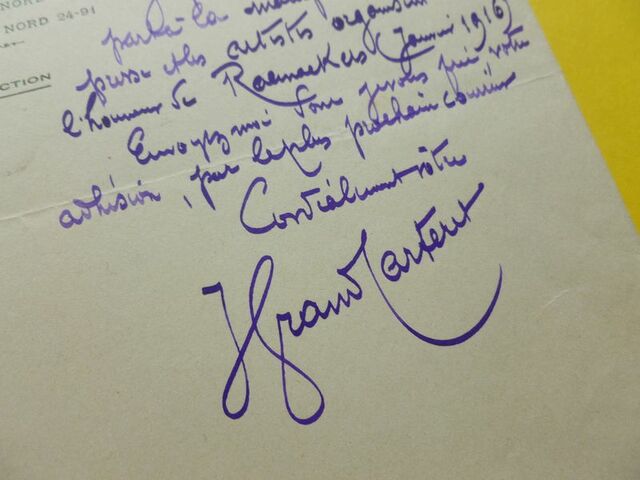 NORD
NORD 24-91
CTION
par la
presse des artistes organisée
l'honneur de Raemaekers (Janvier 1916)
Envoyez moi donc je vous prie votre
adhésion, par le plus prochain courrier
Cordialement vôtre
J Grand Carteret